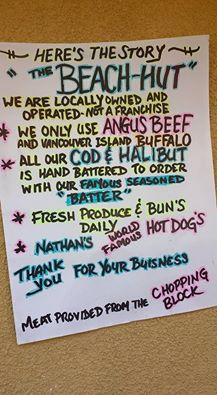 HERE'S THE STORY
"THE BEACH-HUT"
WE ARE LOCALLY OWNED AND
OPERATED - NOT A FRANCHISE
* WE ONLY USE ANGUS BEEF
AND VANCOUVER ISLAND BUFFALO
* ALL OUR COD & HALIBUT
IS HAND BATTERED TO ORDER
WITH OUR FAMOUS SEASONED
"BATTER"
* FRESH PRODUCE & BUN'S
DAILY
* NATHAN'S WORLD FAMOUS HOT DOG'S
THANK YOU FOR YOUR BUISNESS
MEAT PROVIDED FROM THE CHOPPING BLOCK